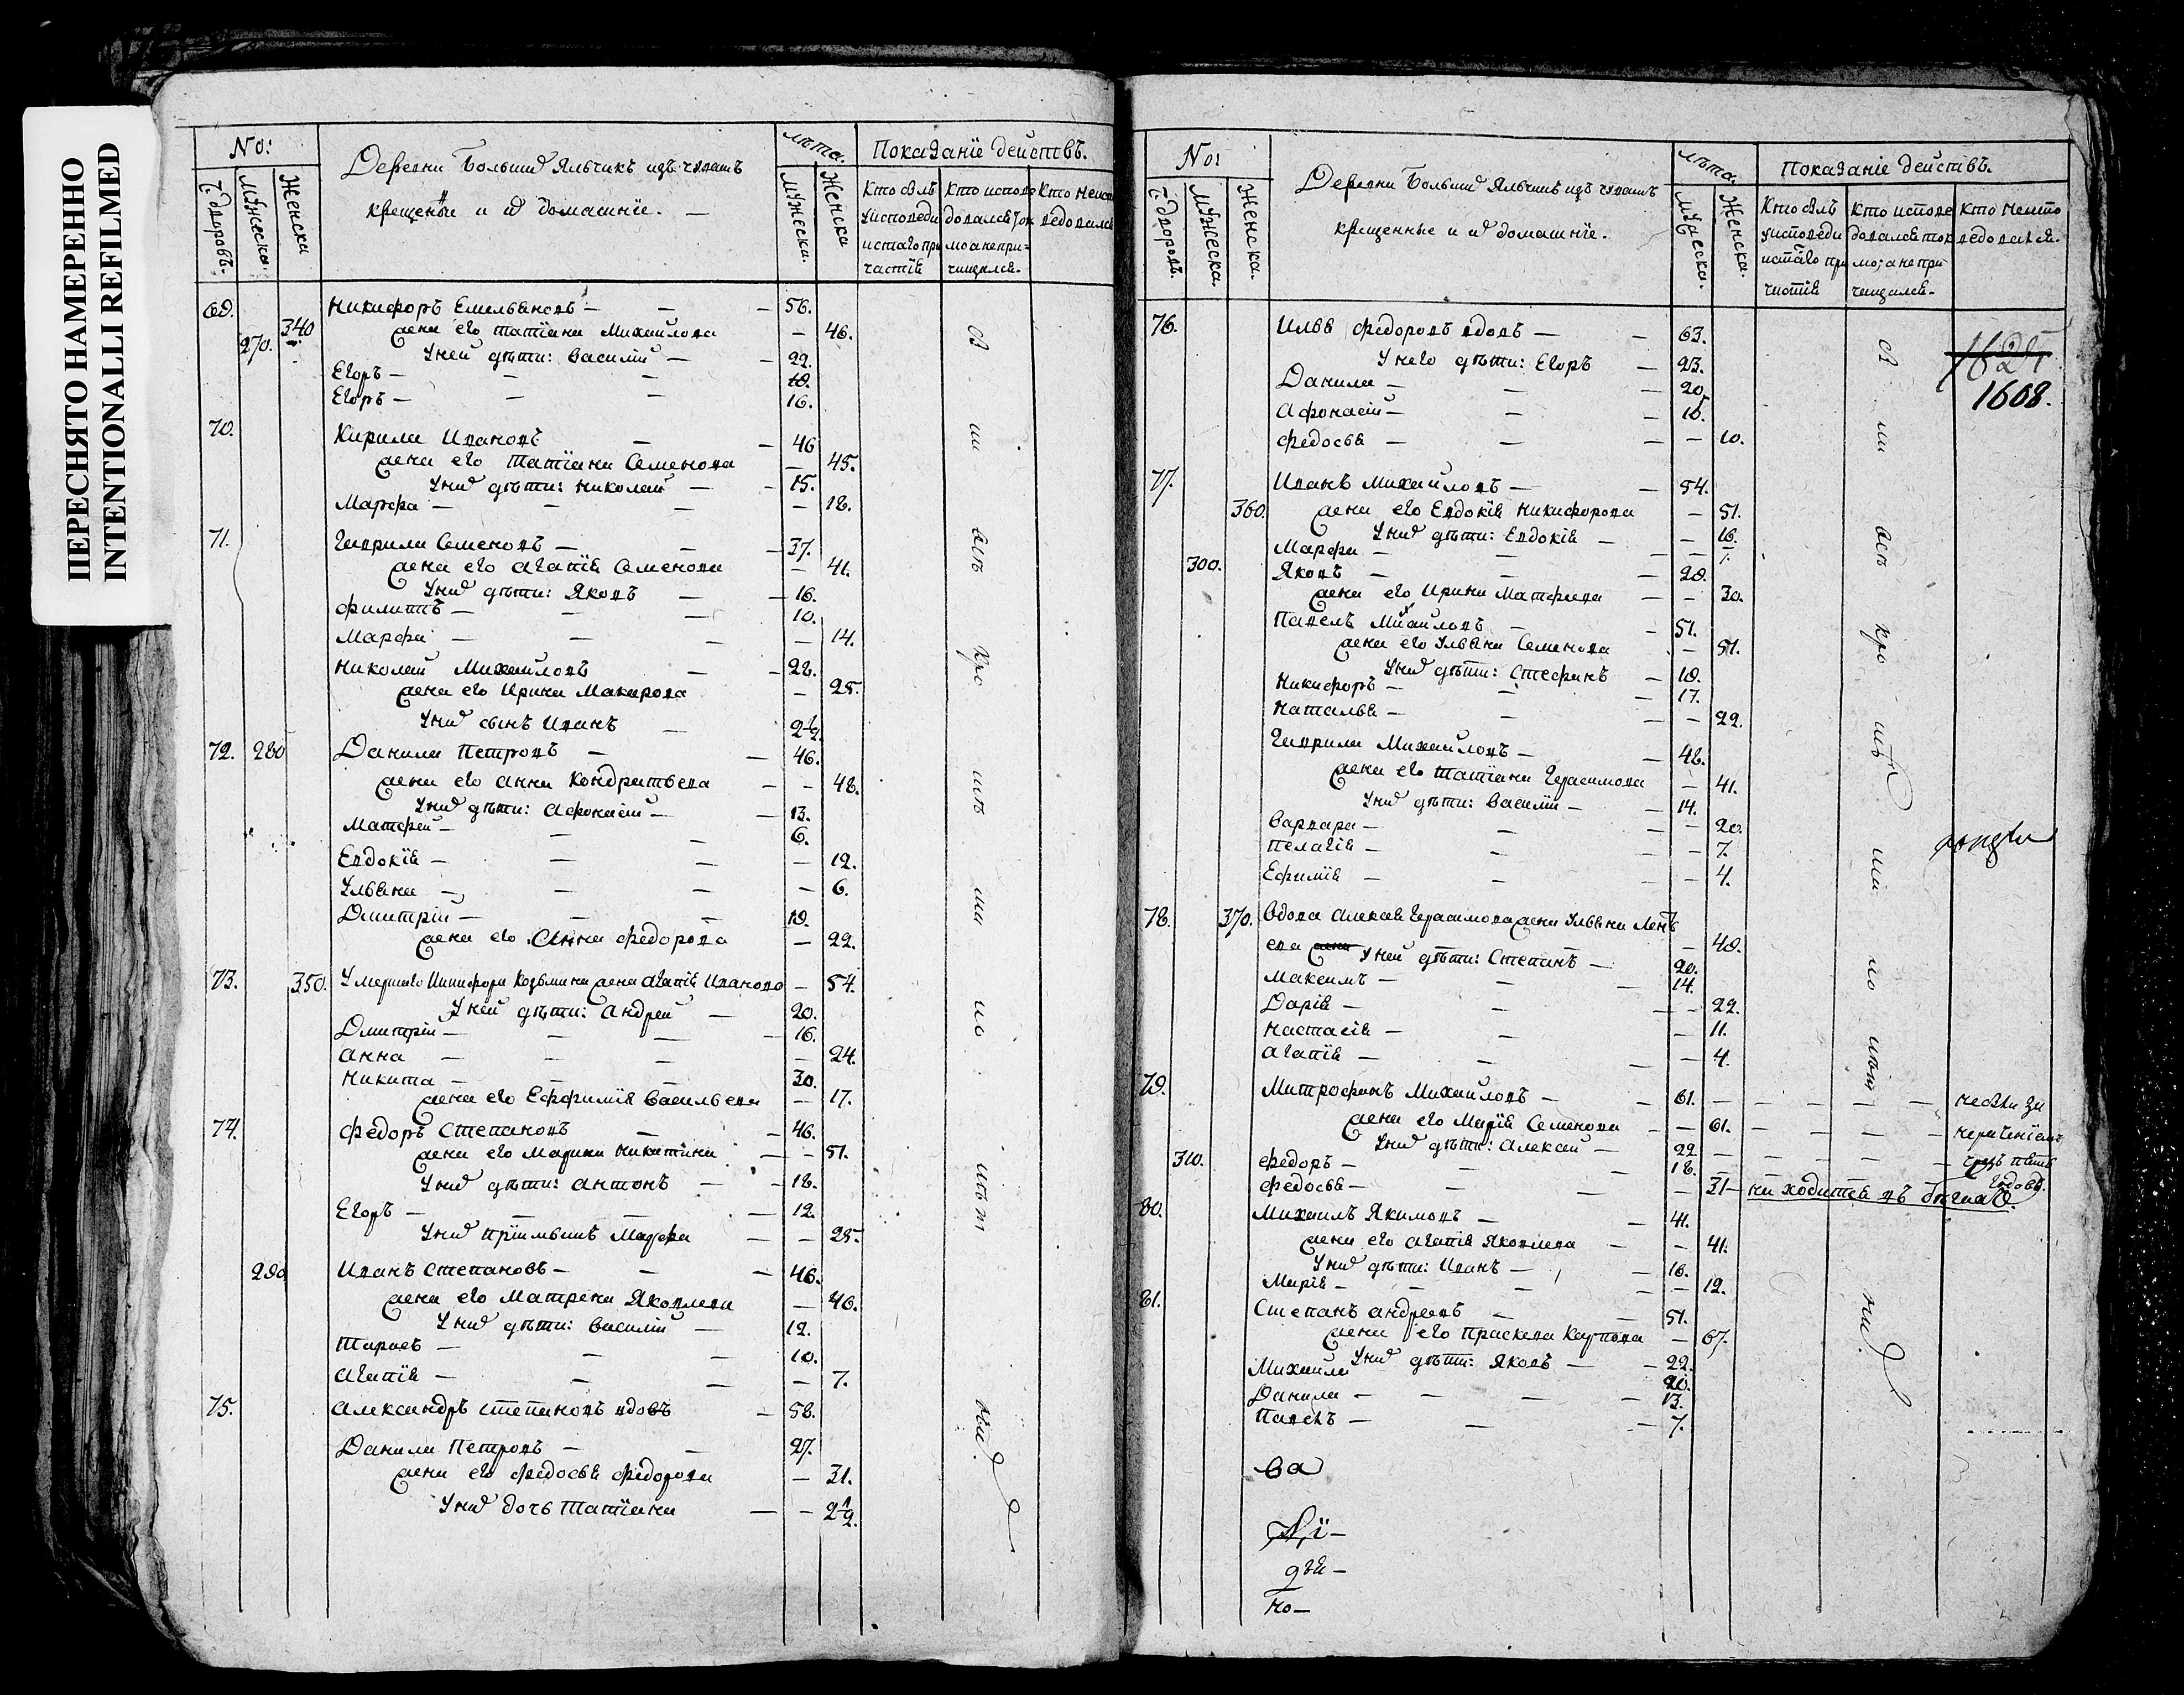 ПЕРЕСНЯТО НАМЕРЕННО
INTENTIONALLI REFILMED
No:
Деревни Большиӯ Яльчикъ изъ чувашъ
крещеные и иӯ домашніе. —
лѣта.
Показаніе действъ.
дворовъ.
Мужеска.
Женска
Мужеска.
Женска
Кто былъ уисповеди истаго причастія
Кто исповедовался токмо а непричищался.
Кто неисповедовался
69. Никифоръ Емельяновъ — — — 56.
340 жена его Татіана Михайлова — 46.
270. Уней дѣти: Василій — — 22.
Егоръ — — — 18.
Егоръ — — — 16.
70. Кирила Ивановъ — — 46
жена его Татіана Семенова — 45.
Униӯ дѣти: Николай — — 15.
Марфа — — — — 18.
71. Гаврила Семеновъ — — — 37.
жена его Агапія Семенова — 41.
Униӯ дѣти: Яковъ — — 16.
Филиппъ — — — 10.
Марфа — — — — 14.
Николай Михайловъ — — 28.
жена его Ирина Макарова — 25.
Униӯ сынъ Иванъ — 2½.
72. 280 Данила Петровъ — — 46.
жена его Анна Кондратьева — — 48.
Униӯ дѣти: Афонасій — — 13.
Матфей — — — 6.
Евдокія — — — — 12.
Ульяна — — — — 6.
Дмитрій — — — 19.
жена его Анна Федорова — 22.
73. 350. Умершаго Никифора Козьмина жена Агапія Иванова — 54.
Уней дѣти: Андрей — 20.
Дмитрій — — — — 16.
Анна — — — — 24.
Никита — — — 30.
жена его Ефимія Васильева — 17.
74. Федоръ Степановъ — — 46.
жена его Марина Никитина — — 51.
Униӯ дѣти: Антонъ — — 18.
Егоръ — — — — 12.
Униӯ пріимышъ Марфа — — 25.
290 Иванъ Степановъ — — — 46.
жена его Матрена Яковлева — 46.
Униӯ дѣти: Василій — 12.
Тарасъ — — — 10.
Агапія — — — — 7.
75. Александръ Степановъ вдовъ — 58.
Данила Петровъ — — 27.
жена его Федосья Федорова — 31.
Униӯ дочь Татіана — — 2½.
No:
Деревни Большиӯ Яльчикъ изъ чувашъ
крещеные и иӯ домашніе.
лѣта.
Показаніе действъ.
дворовъ.
Мужеска.
Женска.
Мужеска.
Женска.
Кто былъ уисповеди истаго причастія
Кто исповедовался токмо, а непричищался.
Кто неисповедовался.
76. Илья Федоровъ вдовъ — — 63.
Унего дѣти: Егоръ — 23.
1608.
Данила — — — 20.
Афонасій — — — 15.
Федосья — — — — 10.
77. Иванъ Михайловъ — — 54.
360. жена его Евдокія Никифорова — 51.
Униӯ дѣти: Евдокія — — 16.
Марфа — — — — 7.
300. Яковъ — — — 28.
жена его Ирина Матфеева — — 30.
Павелъ Михайловъ — — 51.
жена его Ульяна Семенова — 51.
Униӯ дѣти: Стефанъ — 19.
Никифоръ — — — 17.
Наталья — — — — 22.
Гаврила Михайловъ — — 48.
жена его Татіана Герасимова — 41.
Униӯ дѣти: Василій — — 14.
Варвара — — — — 20.
Пелагія — — — — 7.
Ефимія — — — — 4.
78. 370. Вдова Алексея Герасимова жена Ульяна
ева — 49.
Уней дѣти: Степанъ — 20.
Максимъ — — — 14.
Дарія — — — — 22.
Настасія — — — 11.
Агапія — — — — 4.
79. Митрофанъ Михайловъ — — 61. — — — — —
жена его Марія Семенова — — 61. — — — —
Униӯ дѣти: Алексей — 22. — — — — —
310. Федоръ — — — 18. — — — — —
Федосья — — — — 31 — ни ходится въ
80. Михаилъ Якимовъ — — 41.
жена его Агапія Яковлева — — 41.
Униӯ дѣти: Иванъ — — 16.
Марія — — — — 12.
81. Степанъ Андреевъ — — 51.
жена его Праскева Карпова — 67.
Униӯ дѣти: Яковъ — — 22.
Михаила 20.
Данила — — — — 13.
Павелъ — — — 7.
ва